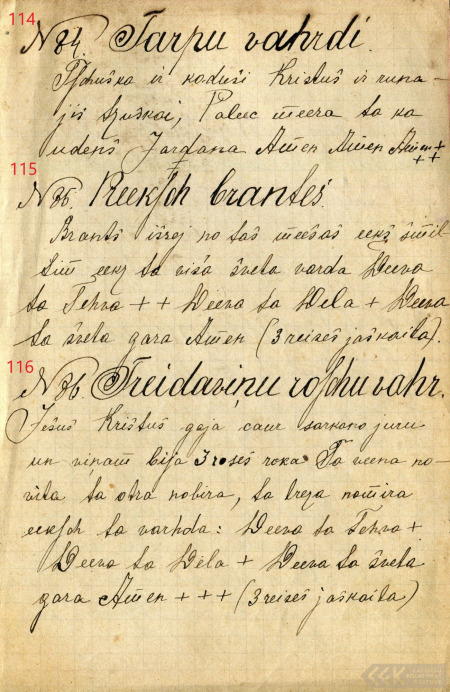 114
N 84. Tarpu vahrdi.
Tschuska ir kaduši Kristuš ir runa-
jiš tzuskai; Paluc meera ta ka
udenš Jardana Amen Amen Amen +
+ + +
115
N 85. Reeksch branteš.
Brantš išrej no taš meesaš eekš smil
tim eekš ta viša šveta varda Deeva
ta Tehva + + Deeva ta Dela + Deeva
ta šveta gara Amen (3 reiseš jaškaita).
116
N 86. Treidaviņu roschu vahr.
Ješuš Krištuš gaja caur sarkano juru
un viņam bija 3 rošeš roka Ta veena no-
vita ta otra nobira, ta treza nomira
eeksch ta varhda: Deeva ta Tehva +
Deeva ta Dela + Deeva ta šveta
gara Amen + + + (3 reiseš jaškaita)